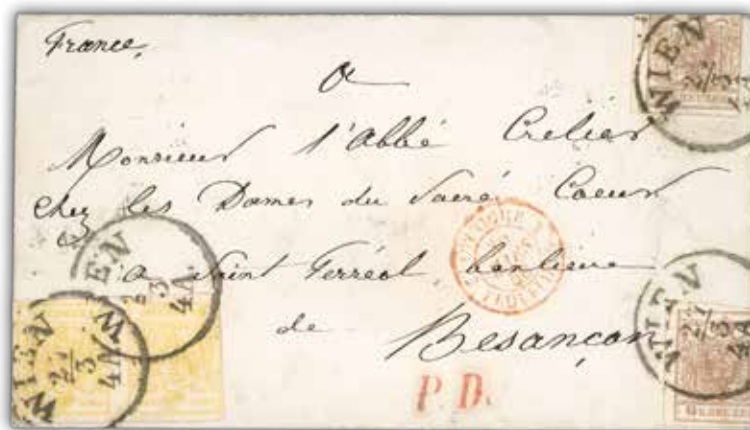 France,
a
Monsieur l'Abbé Crelier
chez les Dames du Sacré Coeur
a Saint Ferréol, banlieue
de Besançon
P.D.
WIEN
2/3
WIEN
27/3
4A
WIEN
2/3
4A.
WIEN
27/3
4A